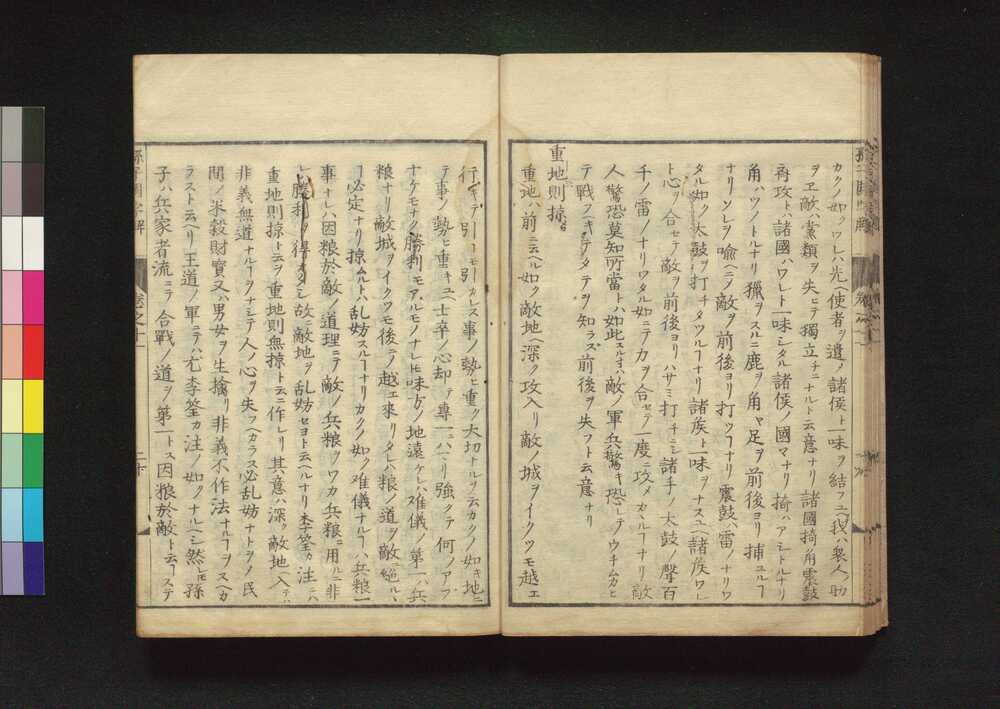 カクノ如クワレハ光ヘ使者ヲ遣ノ諸侯ト一味ヲ結フユヘ我ハ衆人ノ助
ヲヱ敵ハ黨類ヲ失ヒテ獨立チニナルト云意ナリ諸國掎角震鼓
再攻トハ諸國ハワレト一味シタル諸侯ノ國マナリ掎ハアシトルナリ
角ハツノトルナリ獵ヲスルニ鹿ヲノ角ヤ足ヲ前後ヨリ捕ユルヿ
ナリソレヲ喩ヘニノ敵ヲ前後ヨリ打ツヿナリ震鼓ハ雷ノナリワ
タル如ク大鼓ヲ打チタツルヿナリ諸侯ト一味ヲナスユヘ諸侯ワレ
ト心ヲ合セテ敵ヲ前後ヨリハサミ打チニシ諸手ノ大鼓ノ聲百
千ノ雷ノナリワタル如ニテ力ヲ合セテ一度ニ攻メカヽルヿナリ敵
人驚恐莫知所當トハ如此スルヨハ敵ノ軍兵驚キ恐レテウチムカヒ
テ戰フキタテヲ知ラズ前後ヲ失フト云意ナリ
重地則掠
重地ハ前ニ云ヘル如ク敵地ヘ深ク攻入リ敵ノ城ヲイクツモ越エ
行キテ引ヿモ引カレス事ノ勢ヒ重ク大切ナルヲ云カクノ如キ地ニ
テ事ノ勢ヒ重キユヘ士卒ノ心却テ專一ニハマリ強クテ何ノアフ
ナケモナク勝利モアルモノナレ𪜈味方ノ地遠ケレハ難儀ノ第一ハ兵
粮ナリ敵城ヲイクツモ後ニノ越エ來リタレハ粮ノ道ヲ敵ニ絕ルヽ
ヿ必定ナリ掠ムルトハ乱妨スルヿナリカクノ如ク難儀ナルヿハ兵粮一
事ナレハ因粮於敵ノ道理ニテ敵ノ兵粮ヲワカ兵粮ニ用ルニ非
レハ勝利ヲ得ガタシ故ニ敵地ヲ乱妨セヨト云ヘルナリ李筌カ注ニハ
重地則掠ト云ヲ重地則無掠ト云ニ作レリ其意ハ深ク敵地ヘ入テハ
非義無道ナルヿヲナシテ人ノ心ヲ失フヘカラス必乱妨ナトヲノ民
間ノ米穀財寶又ハ男女ヲ生擒リ非義不作法ナルヿヲスヘカ
ラスト云ヘリ王道ノ軍ニテハ尤李筌カ注ノ如クナルヘシ然レ𪜈孫
子ハ兵家者流ニテ合戰ノ道ヲ第一トス因粮於敵ト云ヿステ
卷之十一
二十